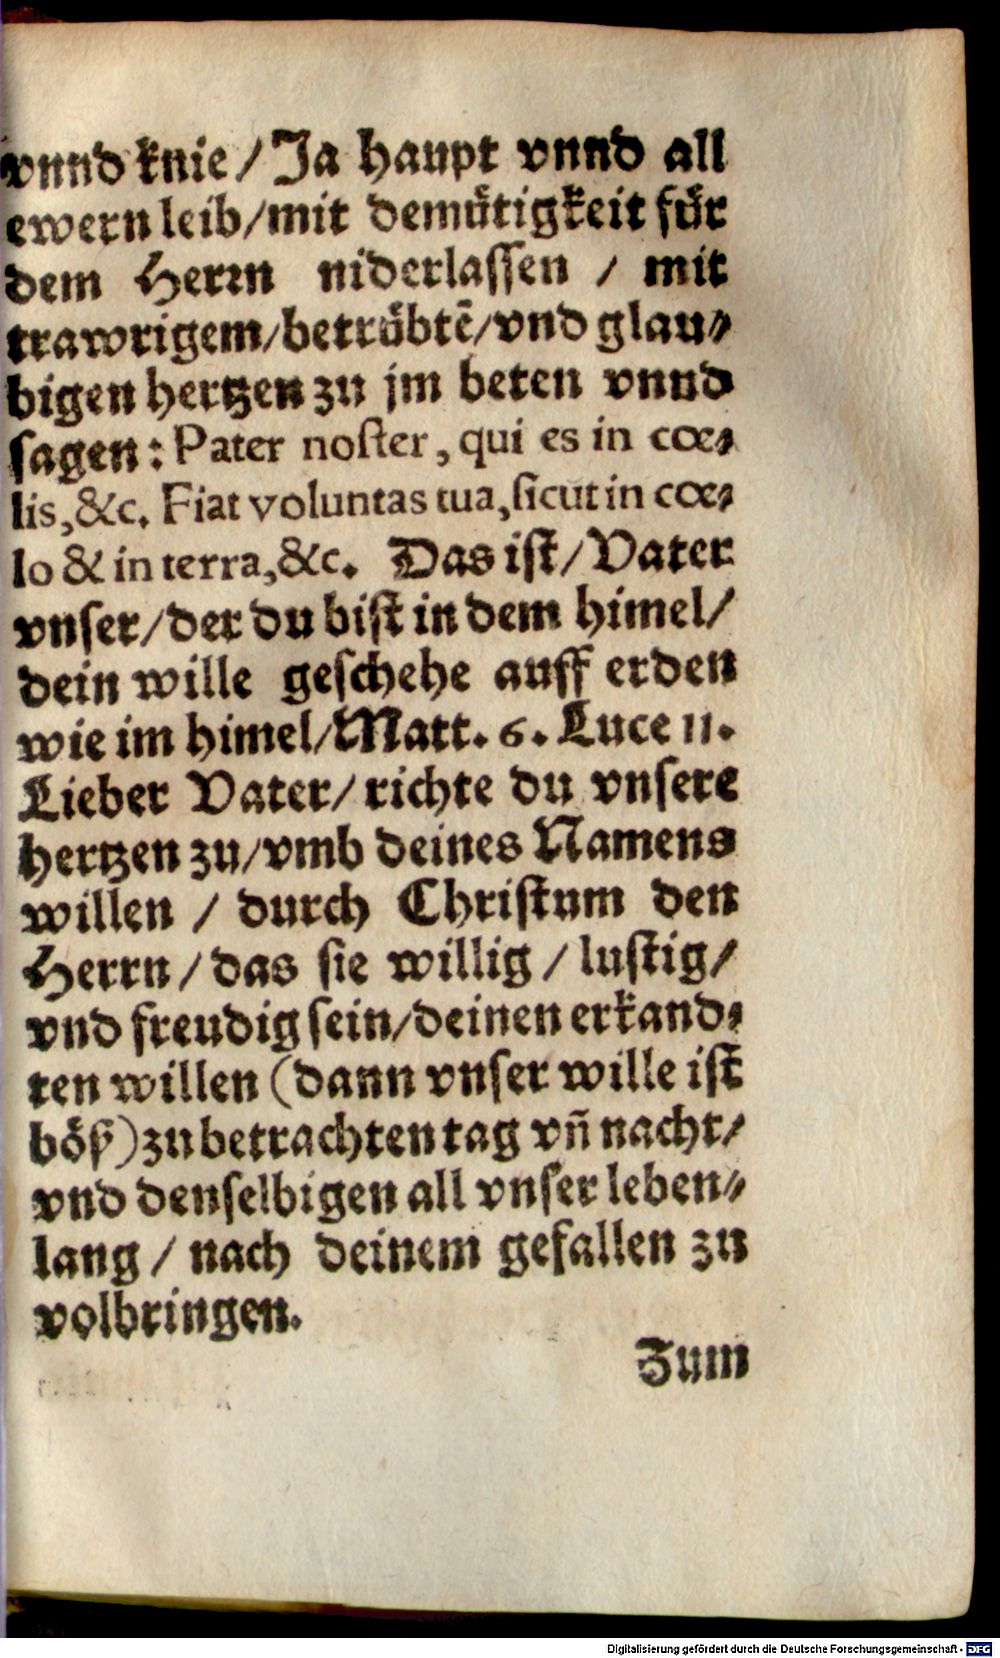 vnnd knie / Ja haupt vnnd all
ewern leib/mit demuͤtigkeit fuͤr
dem Herrn niderlassen / mit
trawrigem/betruͤbtẽ/vnd glau⸗
bigen hertzen zu jm beten vnnd
sagen: Pater noster, qui es in cœ⸗
lis, &c. Fiat voluntas tua, sicut in cœ⸗
lo & in terra, &c. Das ist/Vater
vnser/der du bist in dem himel/
dein wille geschehe auff erden
wie im himel/Matt. 6. Luce 11.
Lieber Vater/richte du vnsere
hertzen zu/vmb deines Namens
willen / durch Christum den
Herrn/das sie willig / lustig/
vnd freudig sein/deinen erkand⸗
ten willen (dann vnser wille ist
boͤß) zu betrachten tag vñ nacht/
vnd denselbigen all vnser leben⸗
lang / nach deinem gefallen zu
volbringen.
Zum
Digitalisierung gefördert durch die Deutsche Forschungsgemeinschaft - DFG